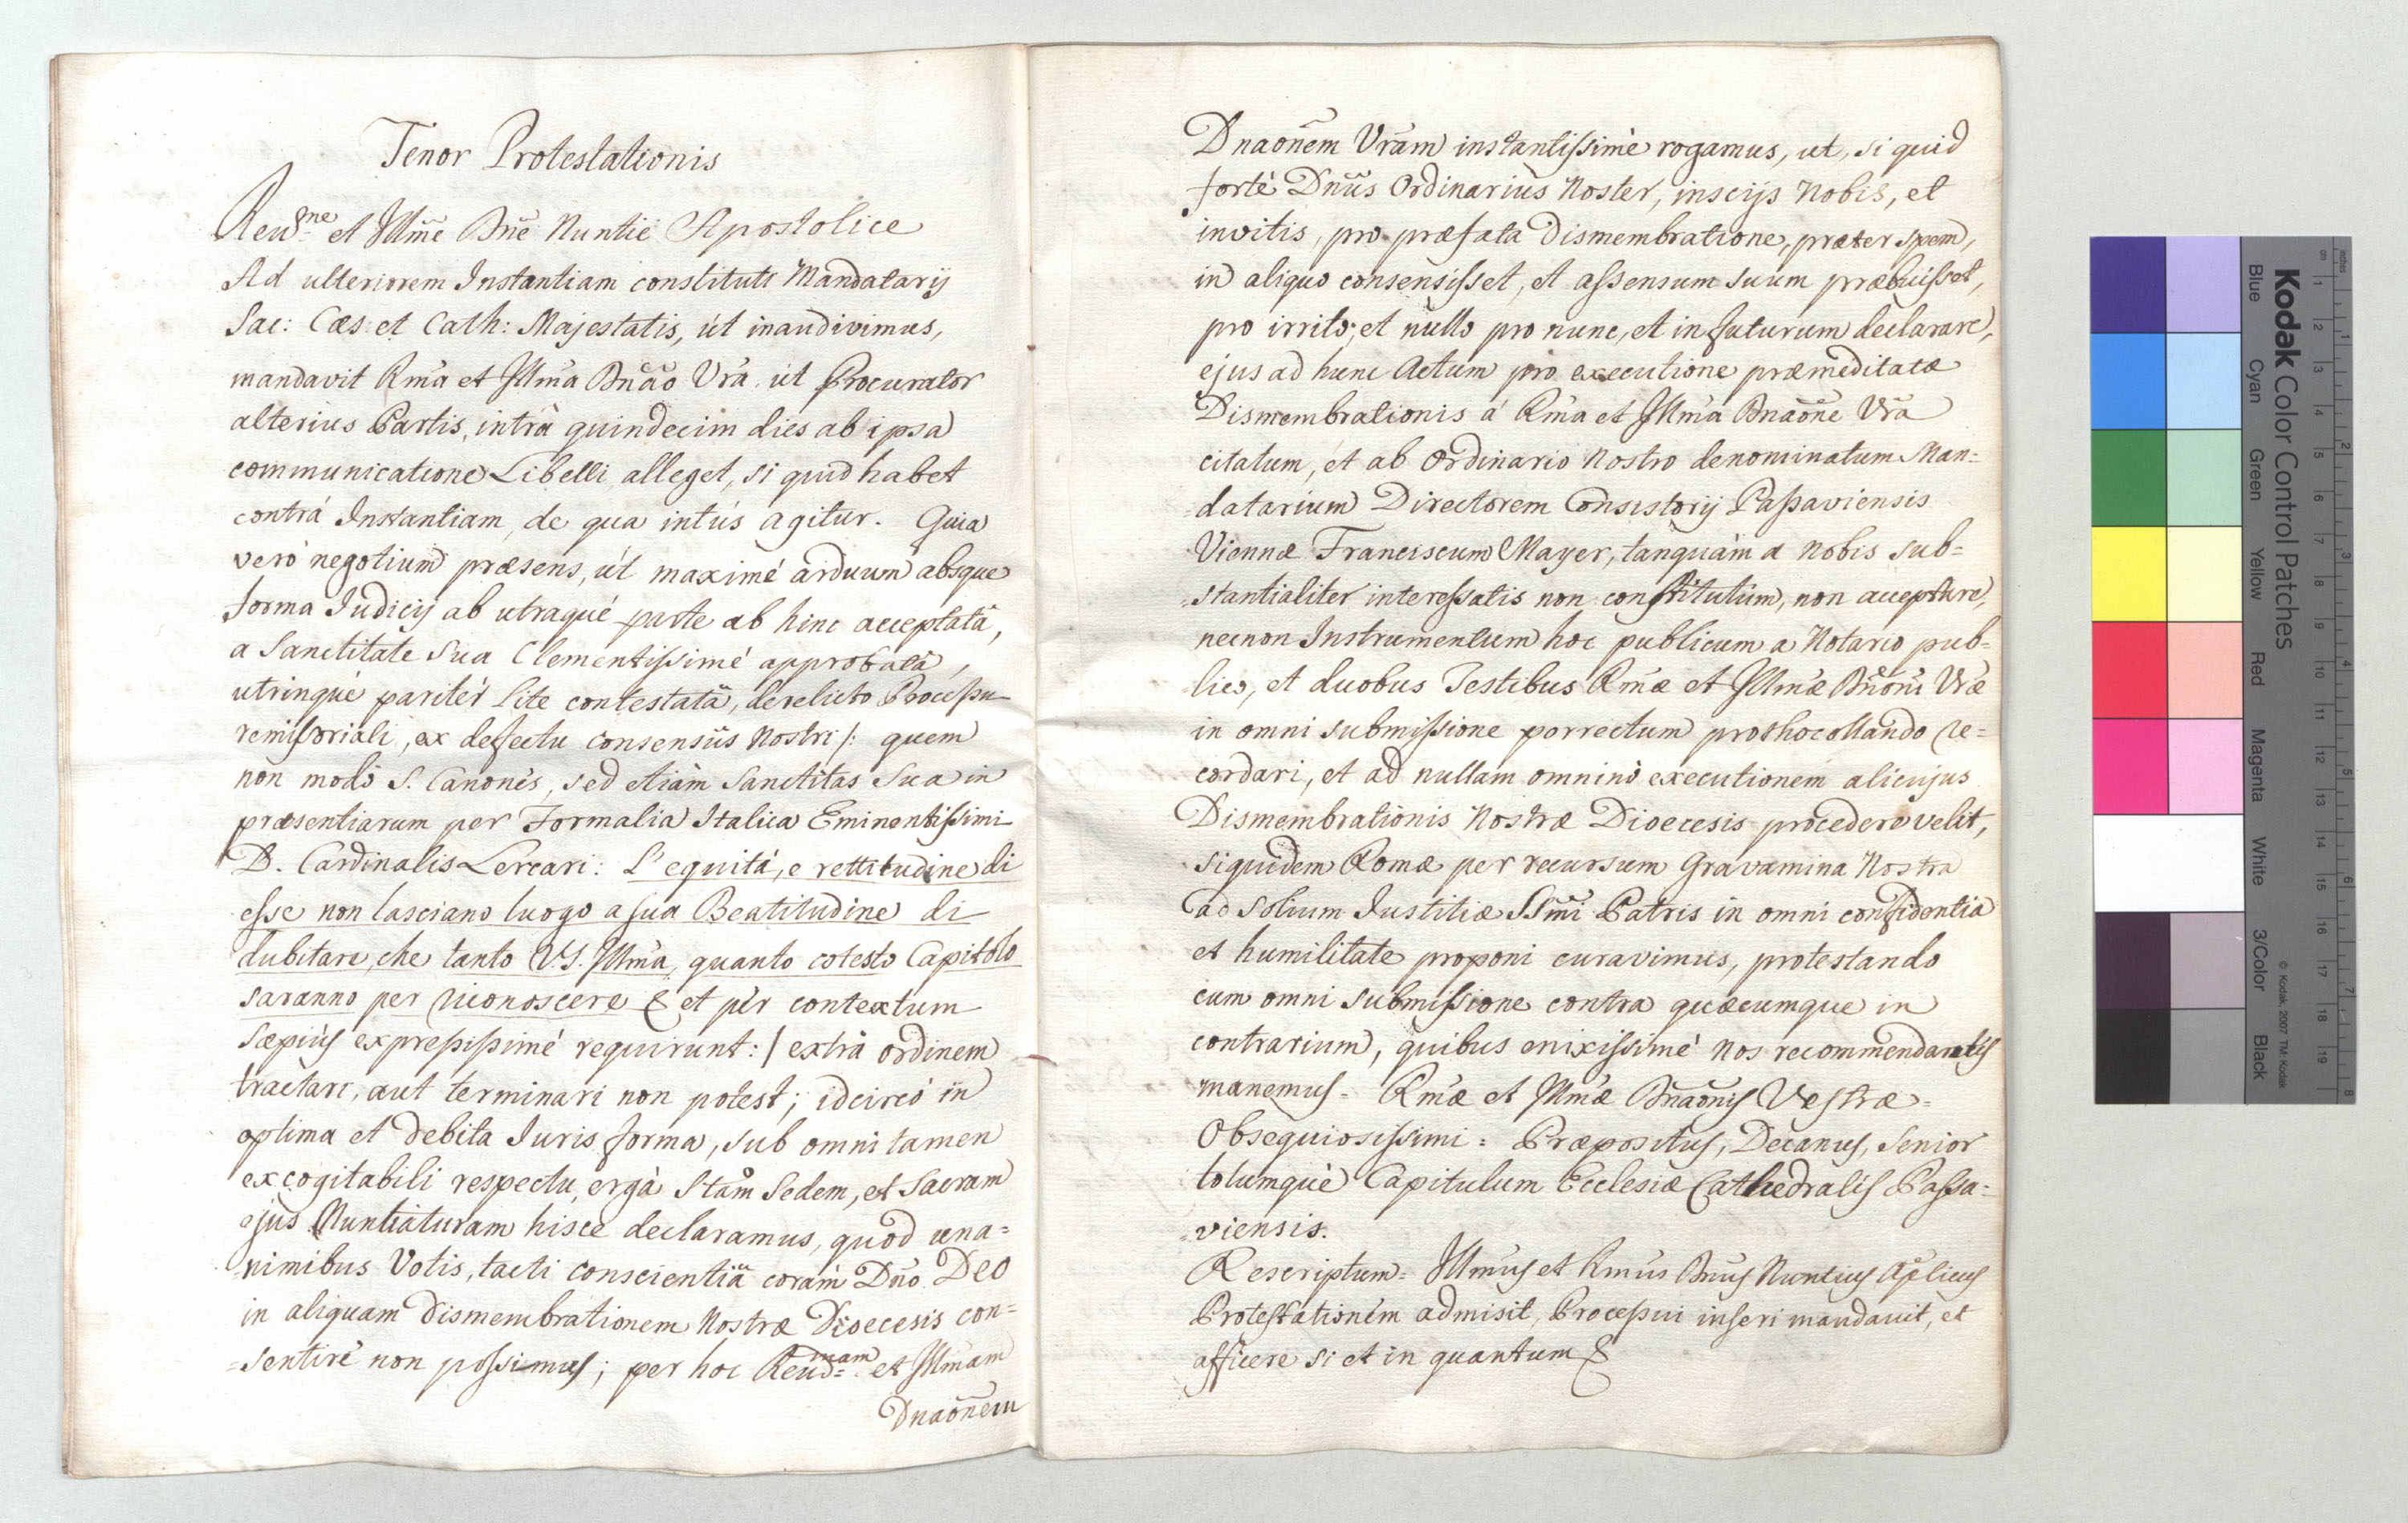 Tenor Protestationis
Revd.ne et Illm̃e Dñe Nuntie Apostolice
Ad ulteriorem Instantiam constituti Mandatarij
Sac: Cæs: et Cath: Majestatis, ùt inaudivimus,
mandavit Rm̃a et Illm̃a Dnãõ Vrã, ut Procurator
alterius Partis, intrà quindecim dies ab ipsa
communicatione Libelli alleget, si quid habet
contrà Instantiam, de qua intùs agitur. Quia
verò negotium præsens, ùt maximé arduum absque
forma Iudicij ab utraqué parte ab hinc acceptatâ,
a Sanctitate Sua Clementissimé approbatâ,
utrinqué paritèr Lite contestatâ, derelicto Processu
remissoriali, ex defectu consensûs Nostri /: quem
non modò S. Canonès, sed etiàm Sanctitas Sua in
præsentiarum per Formalia Italica Eminentissimi
D. Cardinalis Lercari: L'equitá, e rettitudine di
esse non lasciano luogo a sua Beatitudine di
dubitare, che tanto V.S. Illm̃a, quanto cotesto Capitolo
saranno per riconoscere & et pèr contextum
sæpiùs expressissimé requirunt: / extrà ordinem
tractari, aut terminari non potest; idcircó in
optima et debita Iuris forma, sub omni tamen
excogitabili respectu ergà Stam Sedem, et Sacram
ejus Nuntiaturam hisce declaramus, quod una=
nimibus Votis, tacti conscientiâ coràm Dño DEO
in aliquam Dismembrationem Nostræ Dioecesis con=
=sentire non possimus; per hoc Revd=mam et Illm̃am
Dnaõnem
Dnaõnem Vrãm instantissimè rogamus, ut, si quid
fortè Dnũs Ordinarius Noster, inscijs Nobis, et
invitis, pro præfata Dismembratione, præter spem,
in aliquo consensisset, et assensum suum præbuisset,
pro irrito, et nullo pro nunc, et in futurum declarare,
ejus ad hunc Actum pro executione præmeditatæ
Dismembrationis á Rm̃a et Illm̃a Dnaõne Vrã
citatum, et ab Ordinario Nostro denominatum Man=
=datarium Directorem Consistorij Passaviensis
Viennæ Franciscum Mayer, tanquàm a Nobis sub=
=stantialiter interessatis non constitutum, non acceptare,
necnon Instrumentum hoc publicum a Notario pub=
=lico, et duobus Testibus Rm̃æ et Illm̃æ Dñoni Vræ
in omni submissione porrectum prothocollando re=
cordari, et ad nullam omninò executionem alicujus
Dismembrationis Nostræ Dioecesis procedere velit,
siquidem Romæ per recursum Gravamina Nostra
ad Solium Iustitiæ SSm̃i Patris in omni confidentia
et humilitate proponi curavimus, protestando
cum omni submissione contra quæcumque in
contrarium, quibus enixissimé nos recommendantes
manemus = Rm̃æ et Illm̃æ Dnãonis Vestræ =
Obsequiosissimi = Præpositus, Decanus, Senior
totumquè Capitulum Ecclesiæ Cathedralis Passa=
=viensis.
Rescriptum = Illm̃us et Rm̃us Dnũs Nuntius Aplicus
Protestationem admisit, Processui inseri mandavit, et
afficere si et in quantum &
Kodak Color Control Patches
Blue Cyan Green Yellow Red Magenta White 3/Color Black
© Kodak, 2007 TM: Kodak
inches 1 2 3 4 5 6 7 8
cm 1 2 3 4 5 6 7 8 9 10 11 12 13 14 15 16 17 18 19